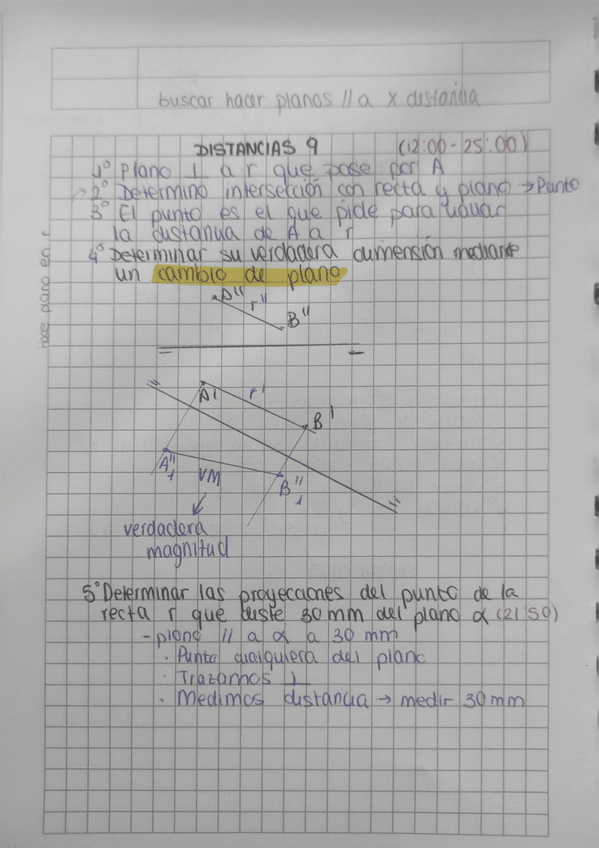 buscar hacer planos // a x distancia
DISTANCIAS 9 (12:00 - 25:00)
1° Plano ⊥ a r que pase por A
2° Determino intersección con recta y plano → Punto
3° El punto es el que pide para llevar
la distancia de A a r
4° Determinar su verdadera dimensión mediante
un cambio de plano
A'' r'' B''
A' r' B'
A''1 VM B''1
verdadera
magnitud
5° Determinar las proyecciones del punto de la
recta r que diste 30 mm del plano α (21:50)
- plano // a α a 30 mm
· Punto cualquiera del plano
· Trazamos ⊥
· Medimos distancia → medir 30 mm